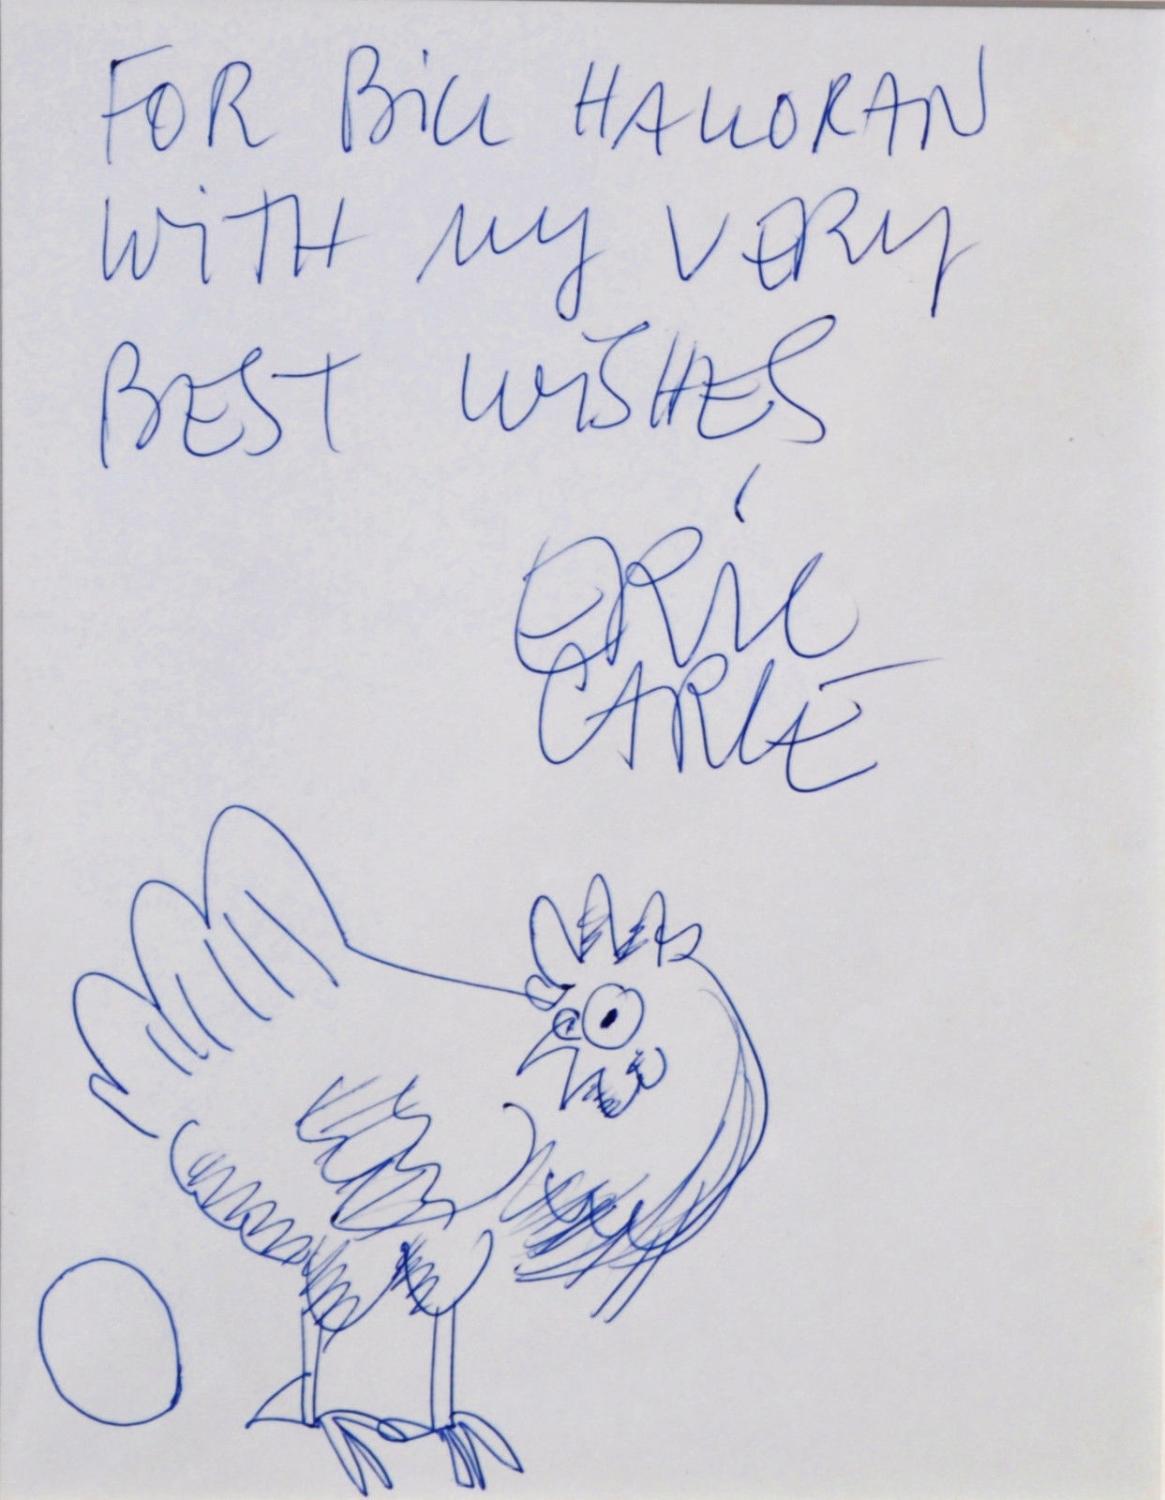 FOR Bill HALLORAN
WiTH MY VERY
BEST WiSHES
ERiC
CARLE